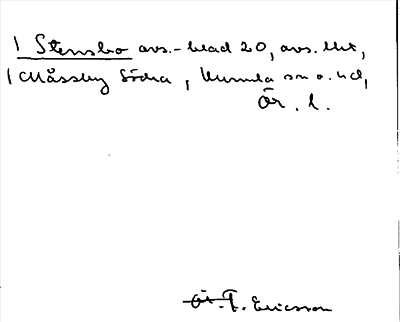 1 Stensbo avs.-blad 20, avs. litt,
1 Mässby Södra, Kumla sn o. hd,
Ör. l.
Ericsson